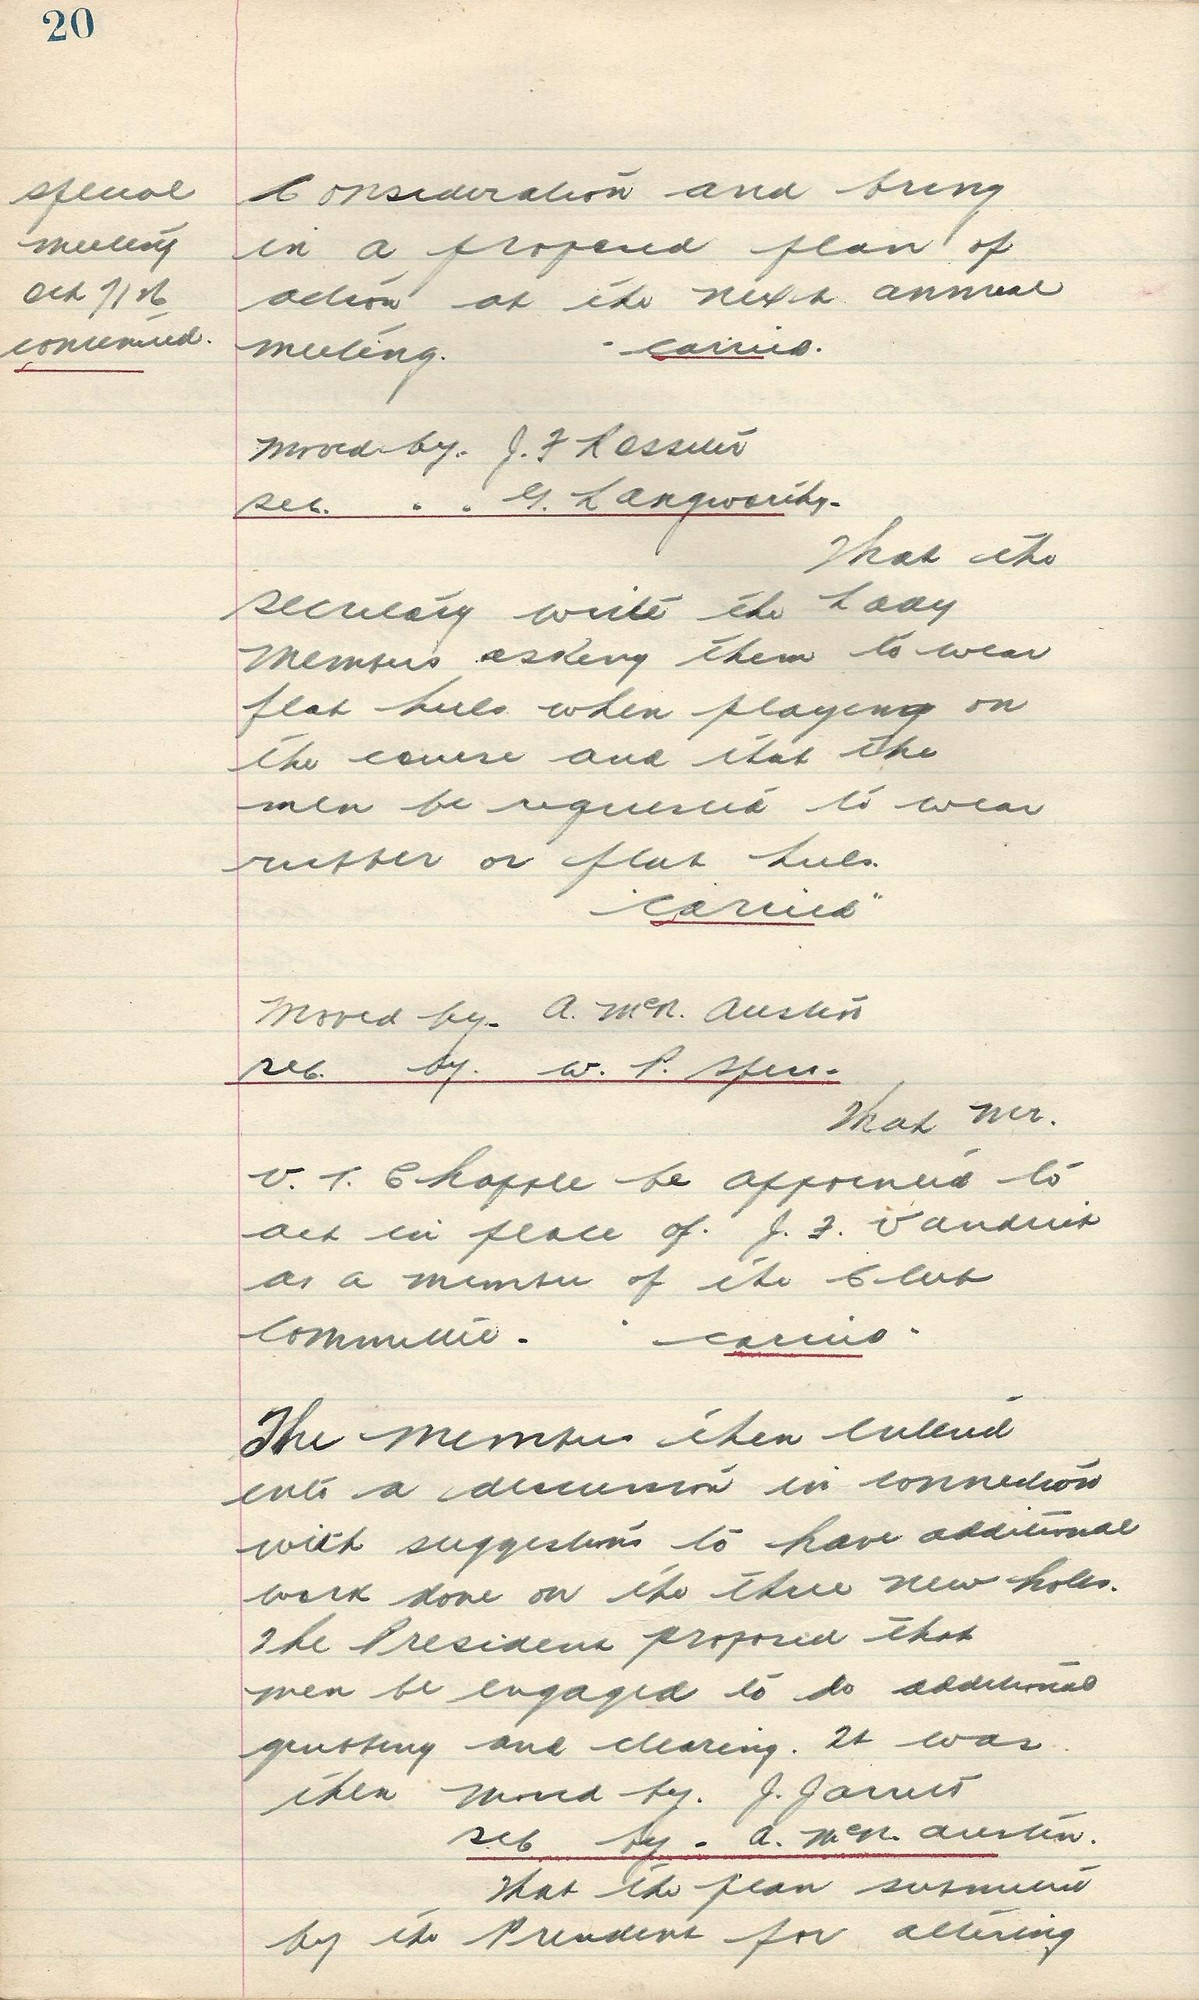 20
special
meeting
Oct 7/26
continued.
Consideration and bring
in a proposed plan of
action at the next annual
meeting. "carried.
Moved by. J. F
sec. " " G. Langworthy.
That the
secretary write the Lady
Members asking them to wear
flat heels when playing on
the course and that the
men be requested to wear
rubber or flat heels.
"carried"
Moved by. A. McN. Austin
sec. by. W. P.
That Mr.
V. T. Chapple be appointed to
act in place of. J. F.
as a member of the Club
Committee. "carried"
The Members then entered
into a discussion in connection
with suggestions to have additional
work done on the three new holes.
The President proposed that
men be engaged to do additional
grubbing and clearing. It was
then moved by. J. Jarrett
sec by. A. McN. Austin.
That the plan submitted
by the President for altering